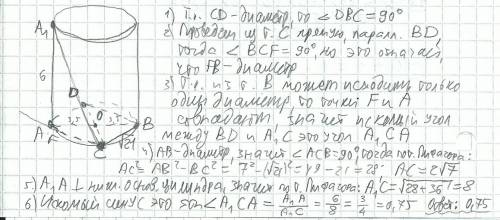 A₁
6
D
3,5
3,5
O
A
F
B
C
√21
1) Т.к. CD-диаметр, то ∠DBC=90°
2) Проведем из т. C прямую, паралл. BD,
тогда ∠BCF=90°, но это означает,
что FB-диаметр
3) Т.к. из т. B может исходить только
один диаметр, то точки F и A
совпадают, значит искомый угол
между BD и A₁C это угол A₁CA
4) AB-диаметр, значит ∠ACB=90°, тогда по т. Пифагора:
AC²=AB²-BC²=7²-√21²=49-21=28. AC=2√7
5) A₁A ⊥ ниж. основ. цилиндра, значит по т. Пифагора: A₁C=√28+36=8
6) Искомый синус это sin∠A₁CA=A₁A/A₁C=6/8=3/4=0,75 Ответ: 0,75